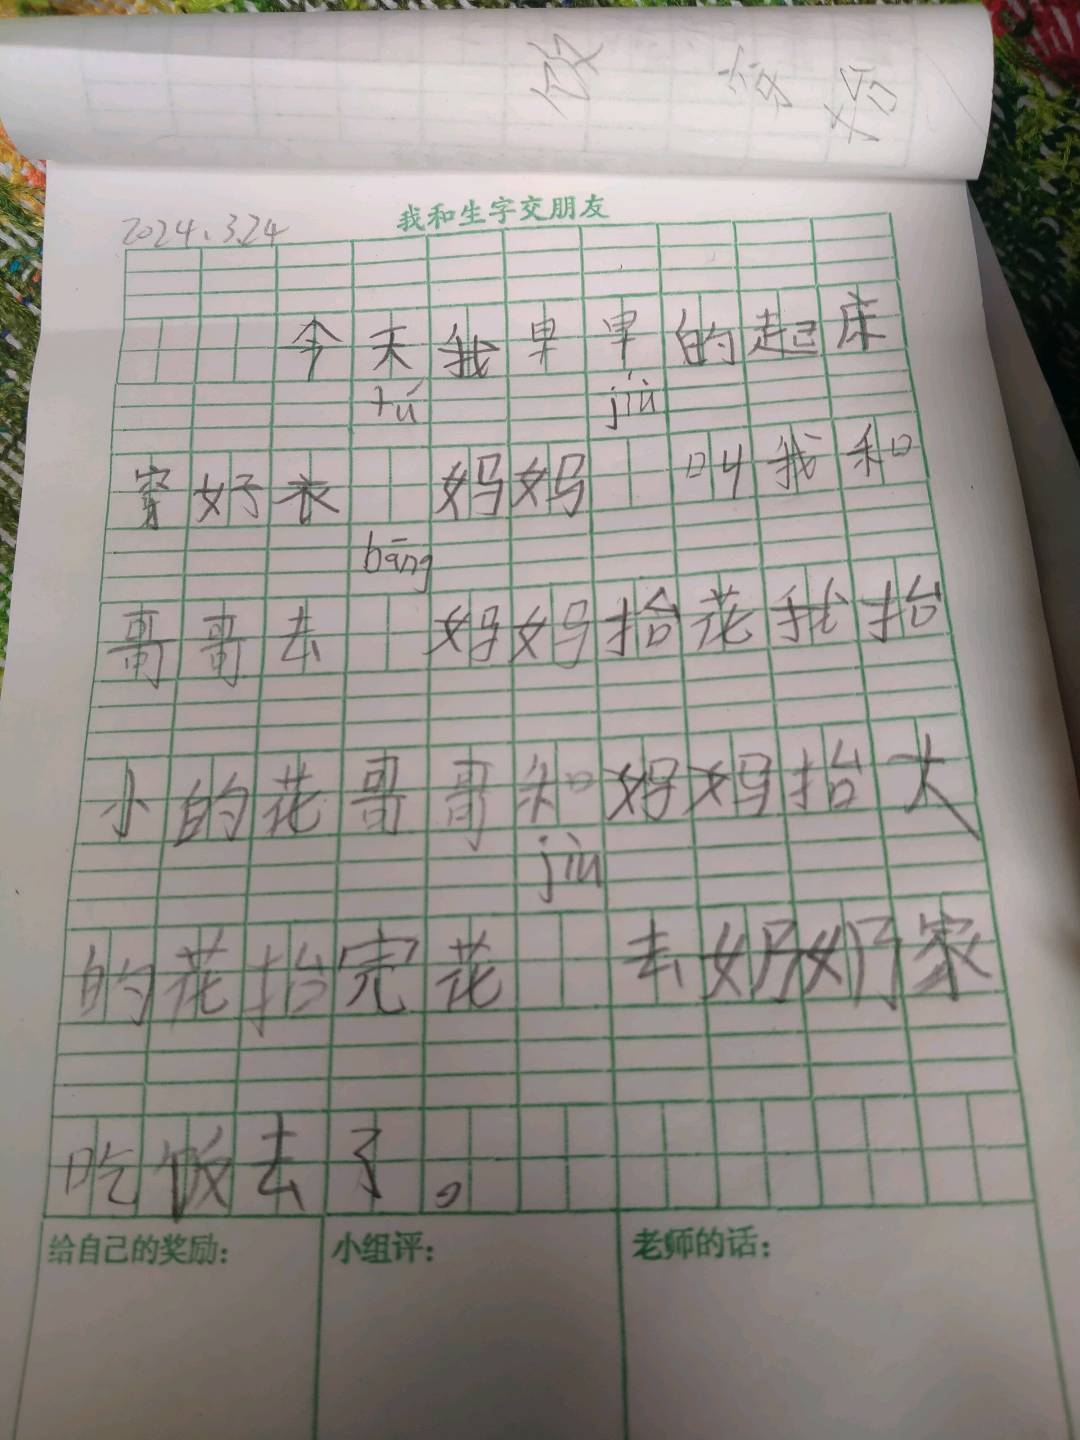 饭 穿 拾
2024.3.24
我和生字交朋友
今天我早早的起床
tú jiù
穿好衣 妈妈 叫我和
bāng
哥哥去 妈妈抬花我抬
小的花哥哥和妈妈抬大
jiù
的花抬完花 去奶奶家
吃饭去了。
给自己的奖励： 小组评： 老师的话：